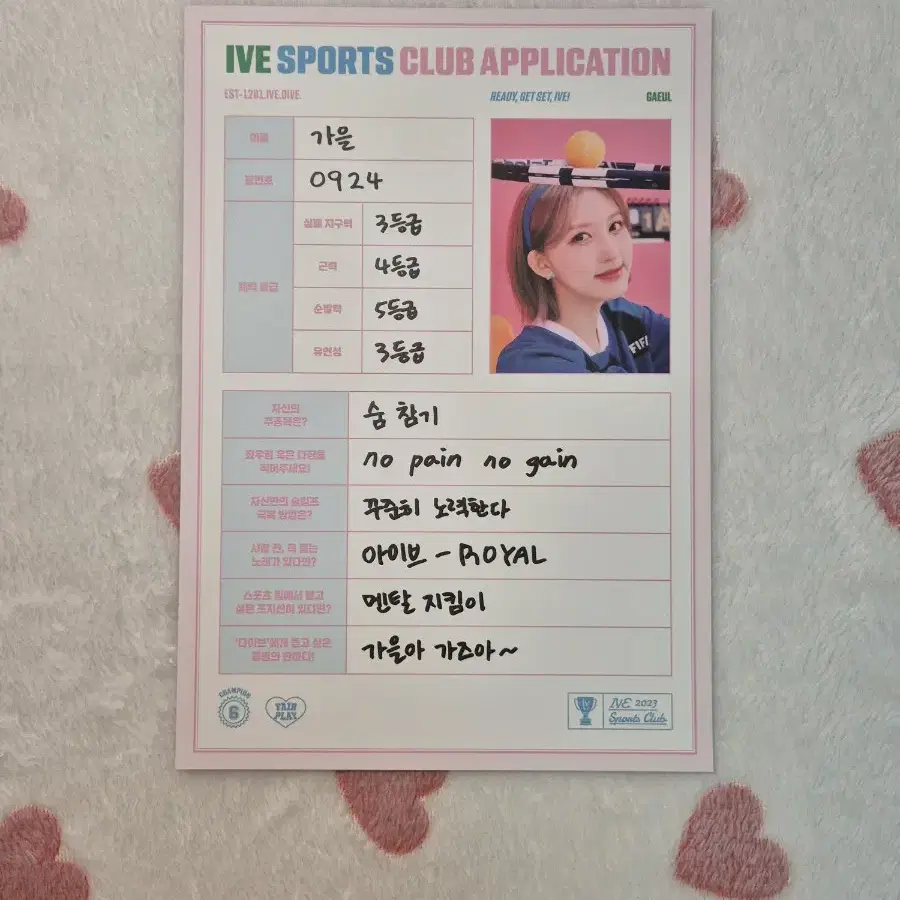 IVE SPORTS CLUB APPLICATION
EST-1201.IVE.DIVE.
READY, GET SET, IVE!
GAEUL
이름
가을
등번호
0924
체력 등급
심폐 지구력
3등급
근력
4등급
순발력
5등급
유연성
3등급
FIFA
자신의
주종목은?
숨 참기
좌우명 혹은 다짐을
적어주세요!
no pain no gain
자신만의 슬럼프
극복 방법은?
꾸준히 노력한다
시합 전, 꼭 듣는
노래가 있다면?
아이브 - ROYAL
스포츠 팀에서 맡고
싶은 포지션이 있다면?
멘탈 지킴이
'다이브'에게 듣고 싶은
응원의 한마디!
가을아 가즈아~
CHAMPION
6
FAIR
PLAY
IVE 2023
Sports Club